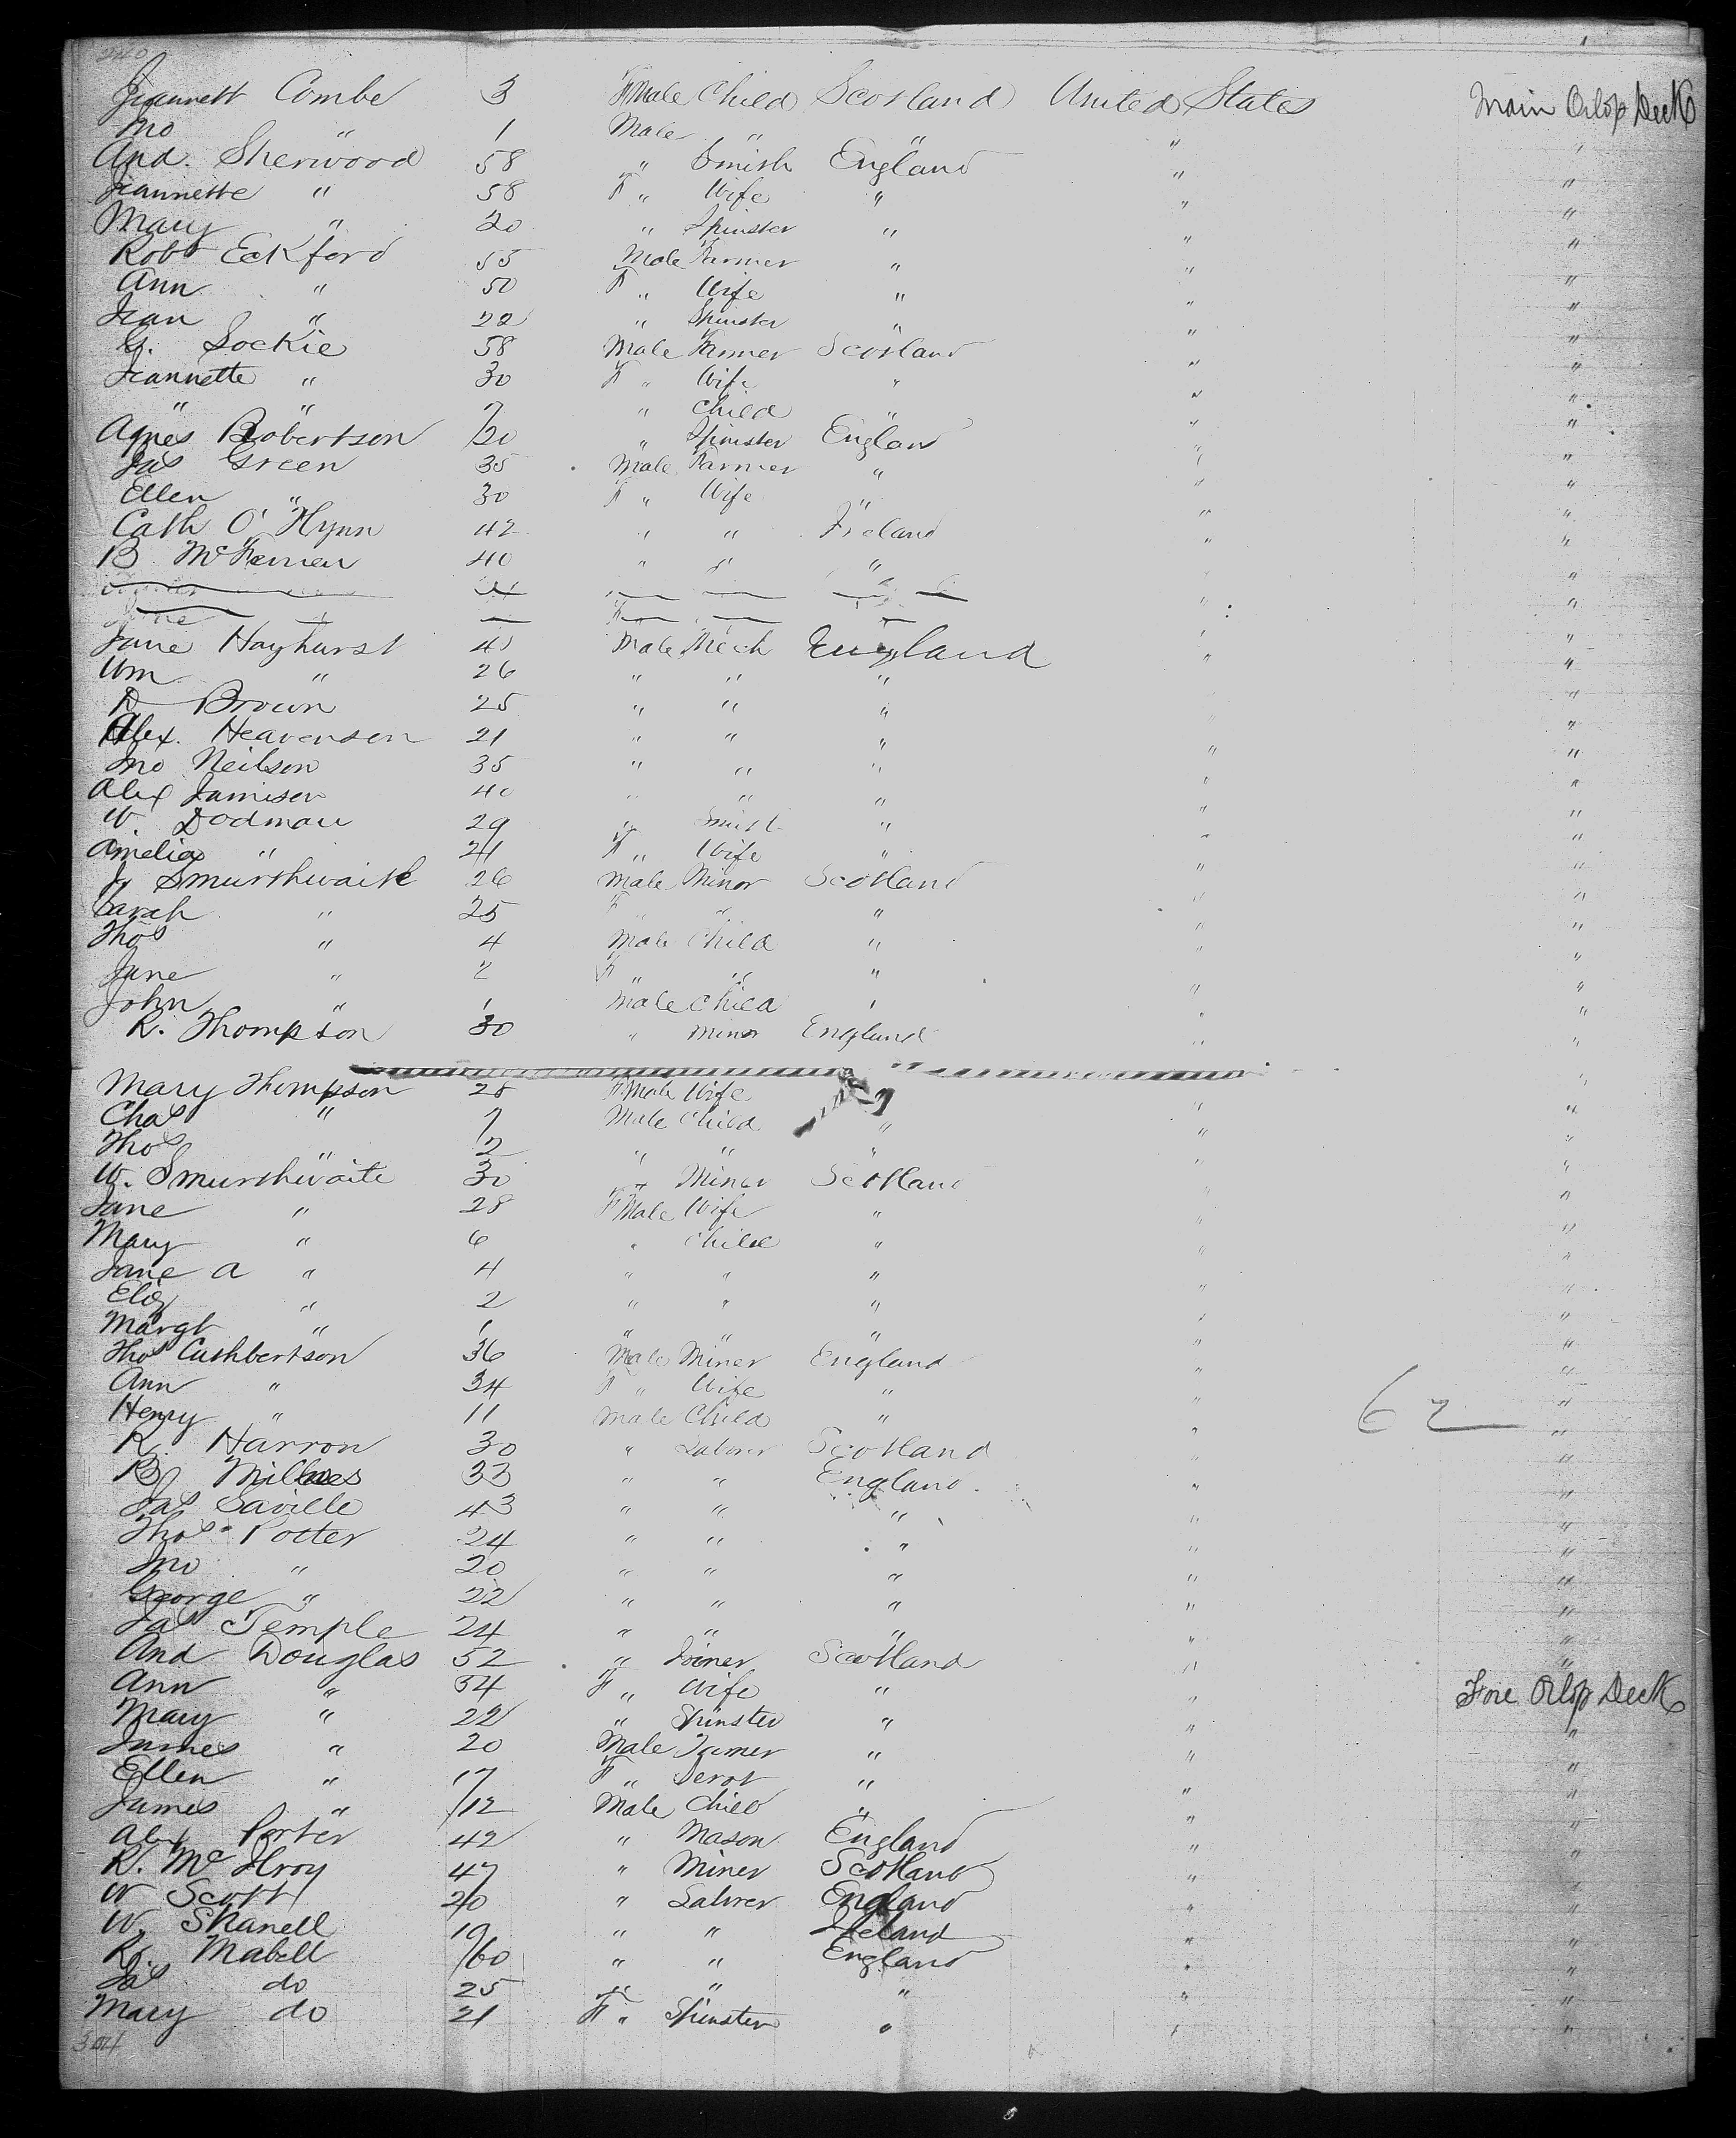 240
Jeannett Combe 3 Fmale Child Scotland United States Main Orlop Deck
Jno " 1 Male " " " "
And. Sherwood 58 " Smith England " "
Jeannette " 58 F " Wife " " "
Mary " 20 " Spinster " " "
Robt Eckford 55 Male Farmer " " "
Ann " 50 F " Wife " " "
Jean " 22 " Spinster " " "
G. Lockie 58 Male Farmer Scotland " "
Jeannette " 30 F " Wife " " "
" " 7 " Child " " "
Agnes Robertson 20 " Spinster England " "
Jas Green 35 Male Farmer " " "
Ellen " 30 F " Wife " " "
Cath O'Flynn 42 " " Ireland " "
B 40 " " " " "
Jane Hayhurst Male Mech England " "
Wm " 26 " " " " "
D Brown 25 " " " " "
Alex. Heavenson 21 " " " " "
Jno Neilson 35 " " " " "
Alex Jamison 40 " " " " "
W. Dodman 29 " Smith " " "
Amelia " 21 F " Wife " " "
J. Smurthwaite 26 Male Minor Scotland " "
Sarah " 25 F " " " "
Thos " 4 Male Child " " "
Jane " 2 F " " " " "
John " 1 Male Child " " "
R. Thompson 30 " Minor England " "
Mary Thompson 28 Fmale Wife " "
Chas " 7 Male Child " " "
Thos " 2 " " " " "
W. Smurthwaite 30 " Miner Scotland " "
Jane " 28 Fmale Wife " " "
Mary " 6 " Child " " "
Jane A " 4 " " " " "
Eliz " 2 " " " " "
Margt " 1 " " " " "
Thos Cuthbertson 36 Male Miner England " "
Ann " 34 F " Wife " " "
Henry " 11 Male Child " " 62 "
R. Harron 30 " Laborer Scotland " "
B 33 " " England " "
Jas Saville 43 " " " " "
Thos Potter 24 " " " " "
Jno " 20 " " " " "
George " 22 " " " " "
Jas Temple 24 " " " " "
And Douglas 52 " Joiner Scotland " "
Ann " 54 F " Wife " " Fore Orlop Deck
Mary " 22 " Spinster " " "
James " 20 Male " " "
Ellen " 17 F " Servt " " "
James " /12 Male Child " " "
Alex Porter 42 " Mason England " "
R. McIlroy 47 " Miner Scotland " "
W Scott 20 " Laborer England " "
W. Skanell 19 " " Ireland " "
R. Mabell 60 " " England " "
Jas do 25 " " " " "
Mary do 21 F " Spinster " " "
304